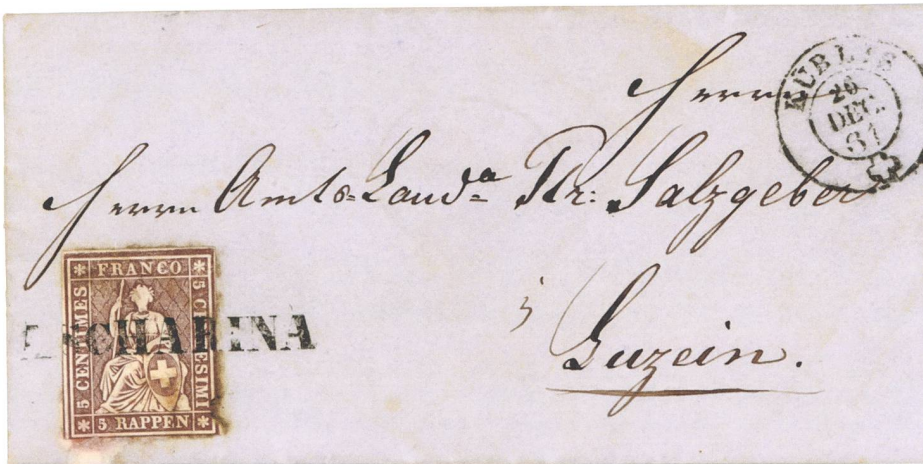 KÜBLIS
20
DEC.
61
Herrn
Herrn Amts=Landa Ptr: Salzgeber
Luzein.
FRANCO
5 CENTIMES
5 CENTESIMI
5 RAPPEN